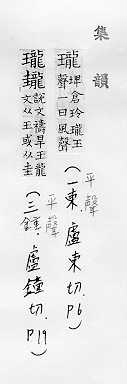 集韻
瓏 埤倉玲瓏玉
聲一曰風聲
平聲
(一東．盧東切P6)
瓏 說文禱旱玉龍
文从玉或从圭
平聲
(三鍾．盧鐘切．P19)